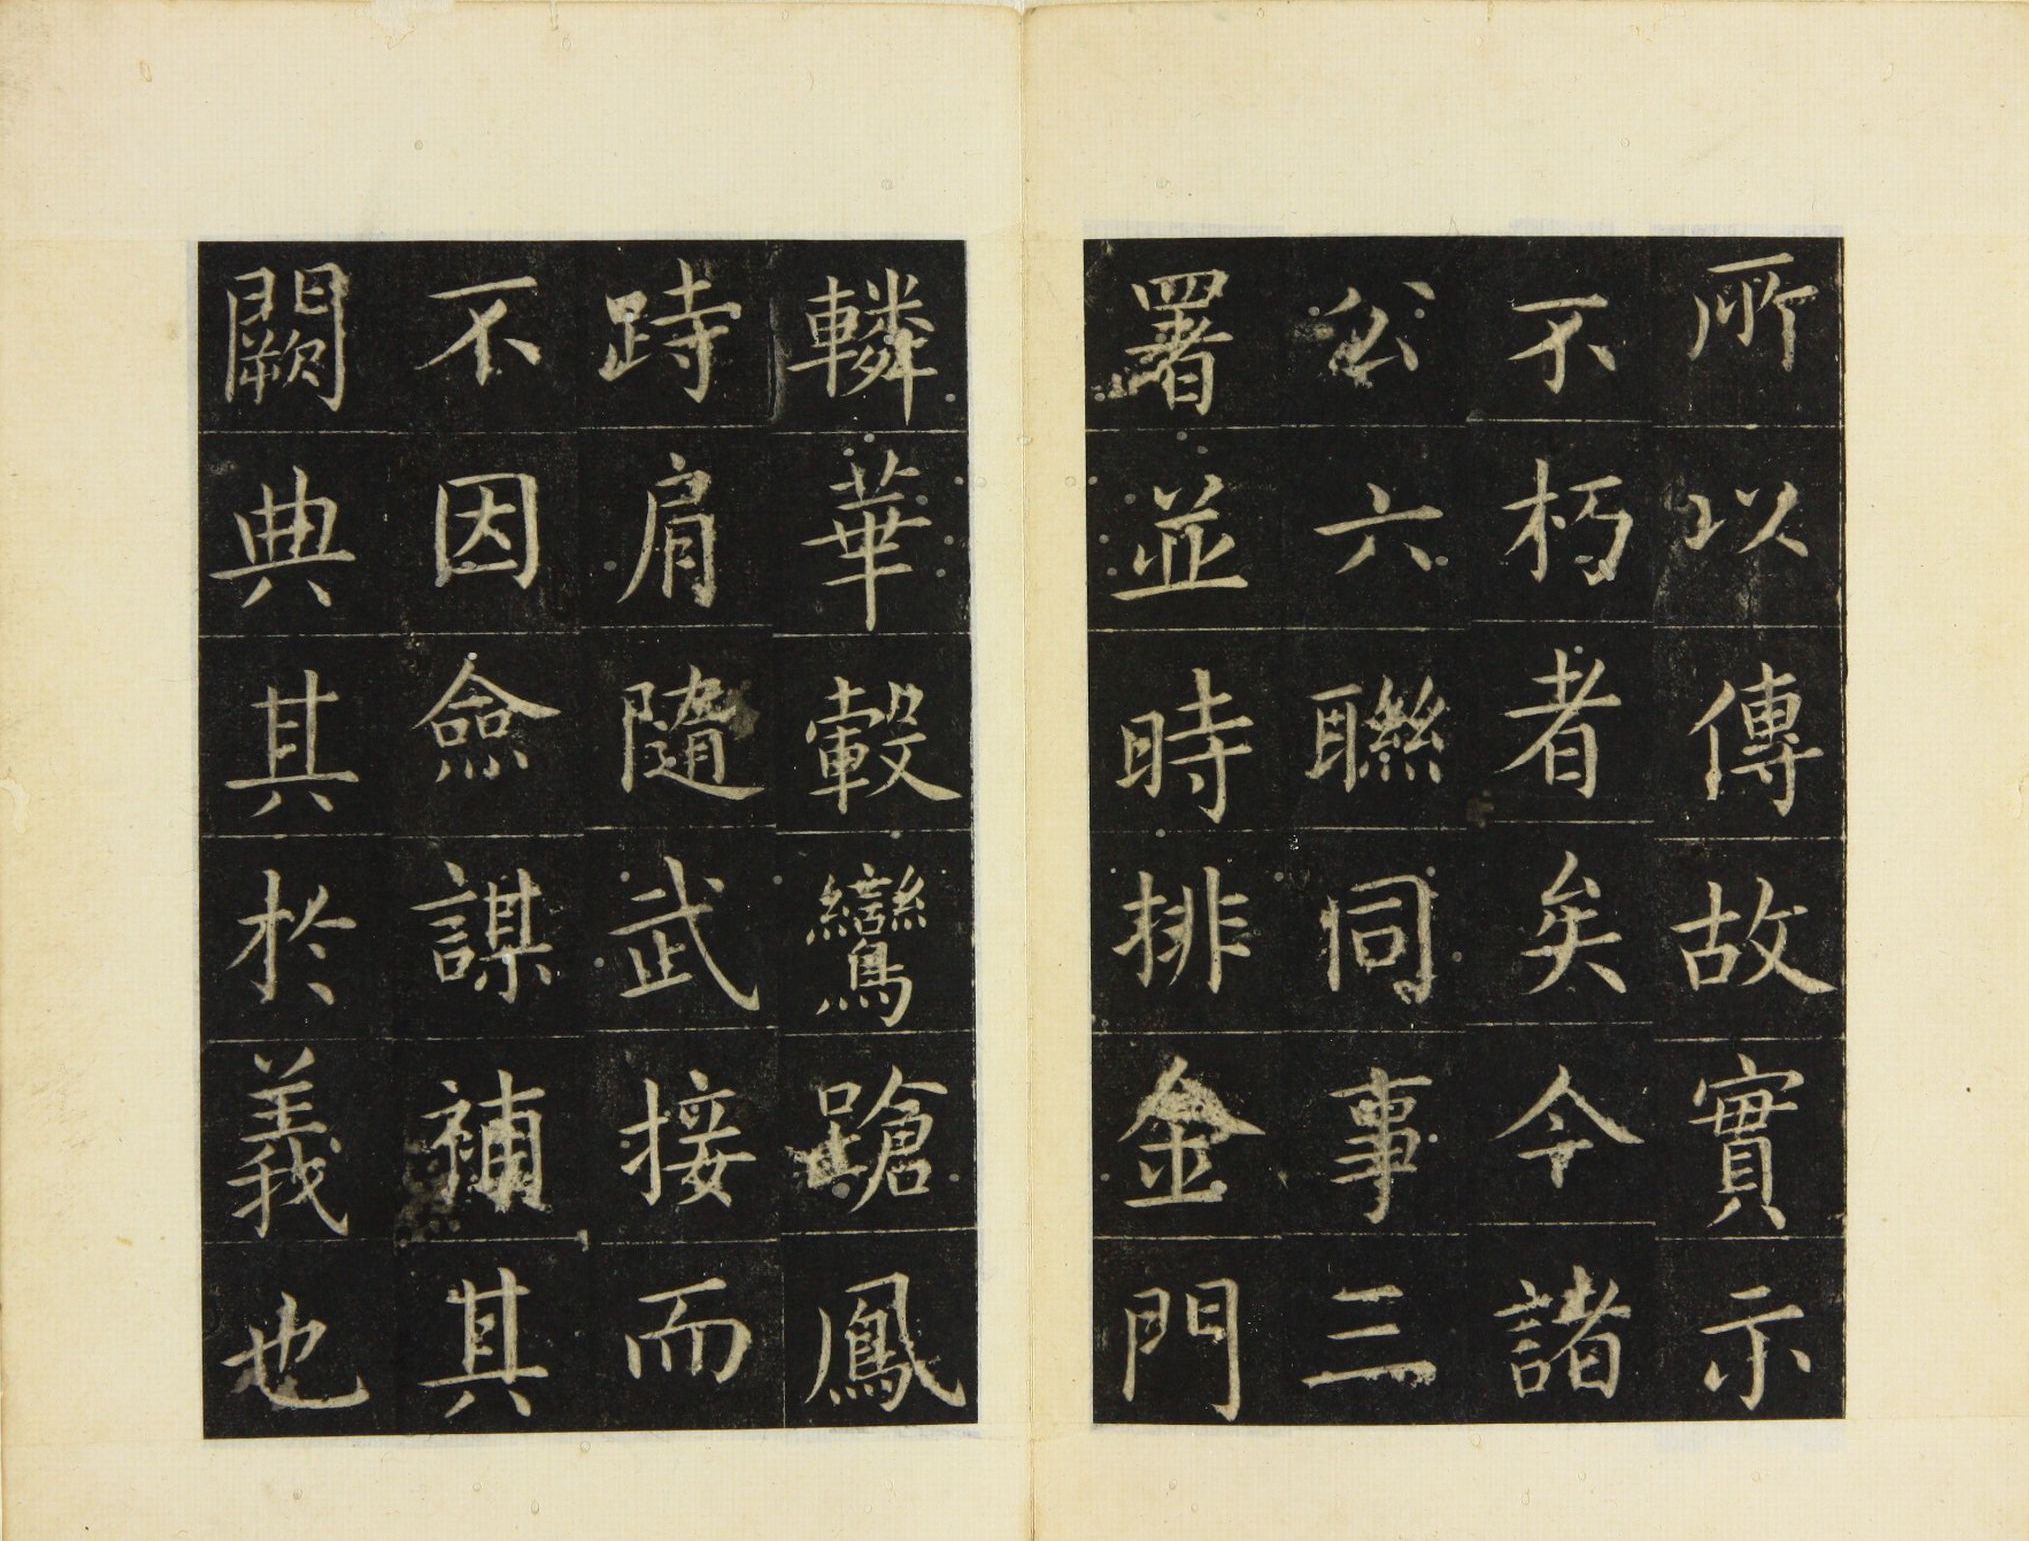 所以傳故實示
不朽者矣今諸
公六聯同事三
署並時排金門
轔華轂鸞蹌鳳
跱肩隨武接而
不因僉謀補其
闕典其於義也